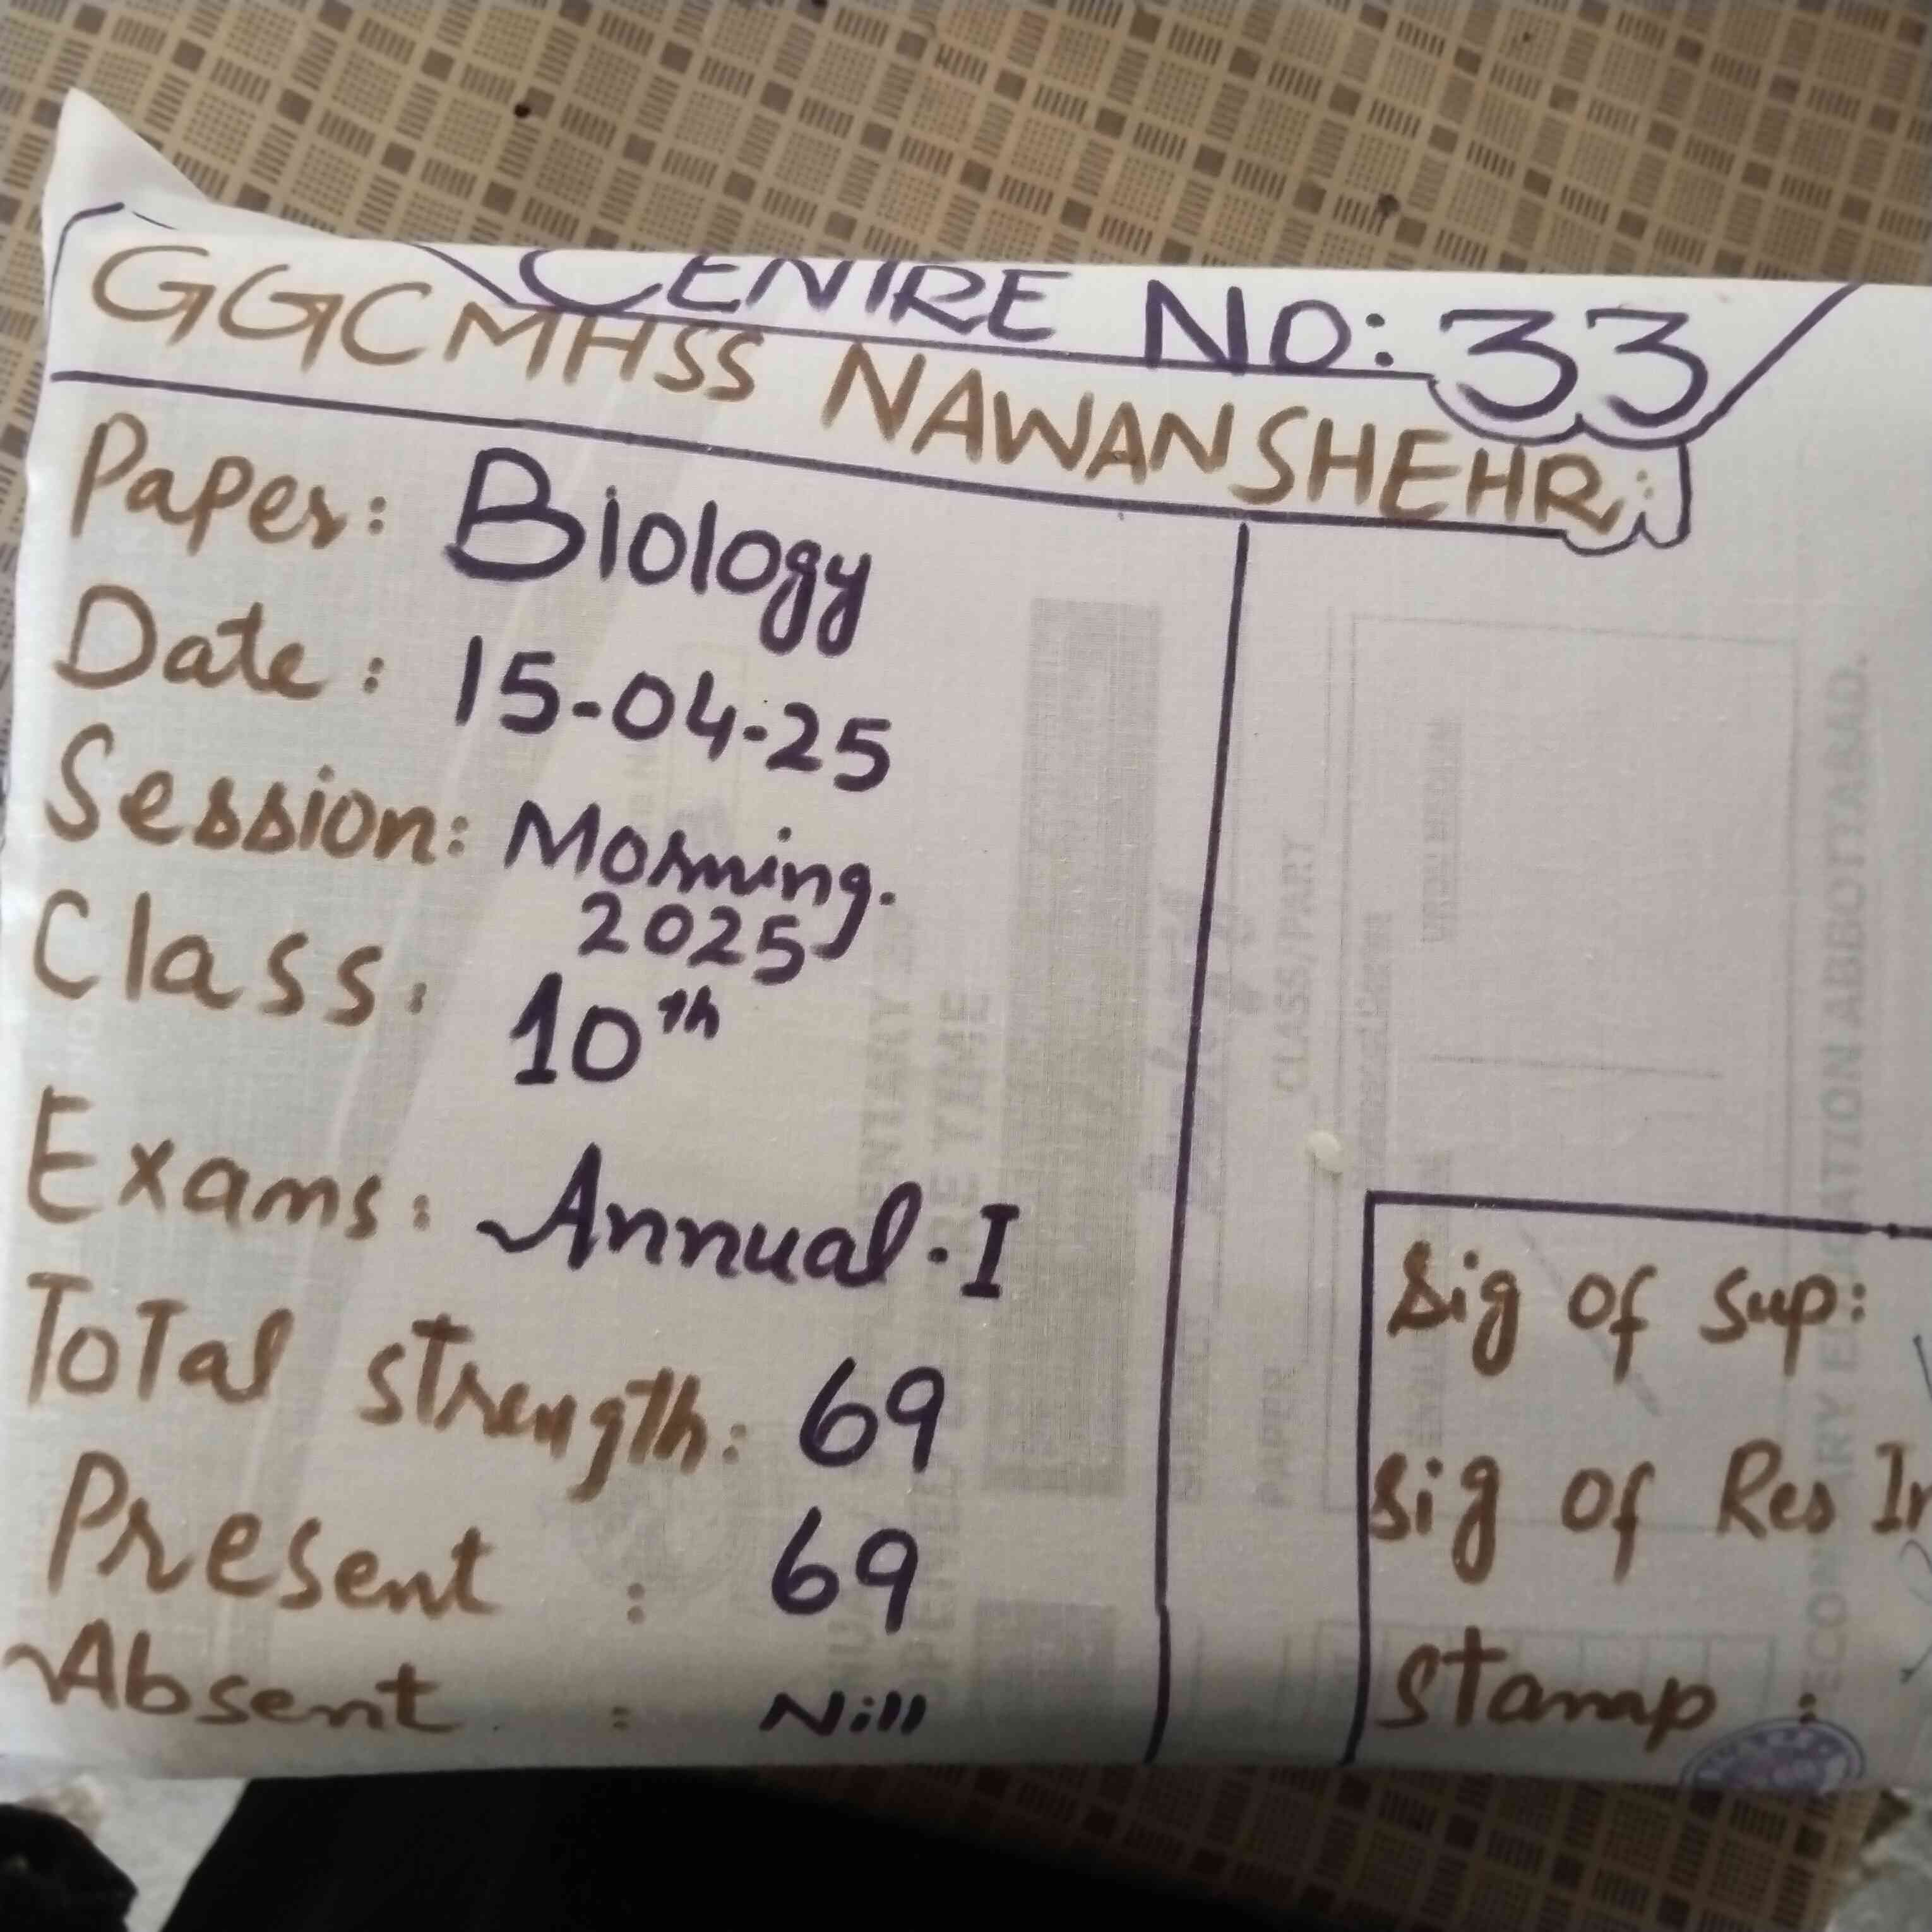 CENTRE NO: 33
GGCMHSS NAWANSHEHR:
Paper: Biology
Date: 15-04-25
Session: Morning.
2025
Class: 10th
Exams: Annual-I
Total strength: 69
Present : 69
Absent : Nill
Sig of Sup:
Sig of Res In
Stamp :
CLASS/PART
PAPER
SECONDARY EDUCATION ABBOTTABAD.